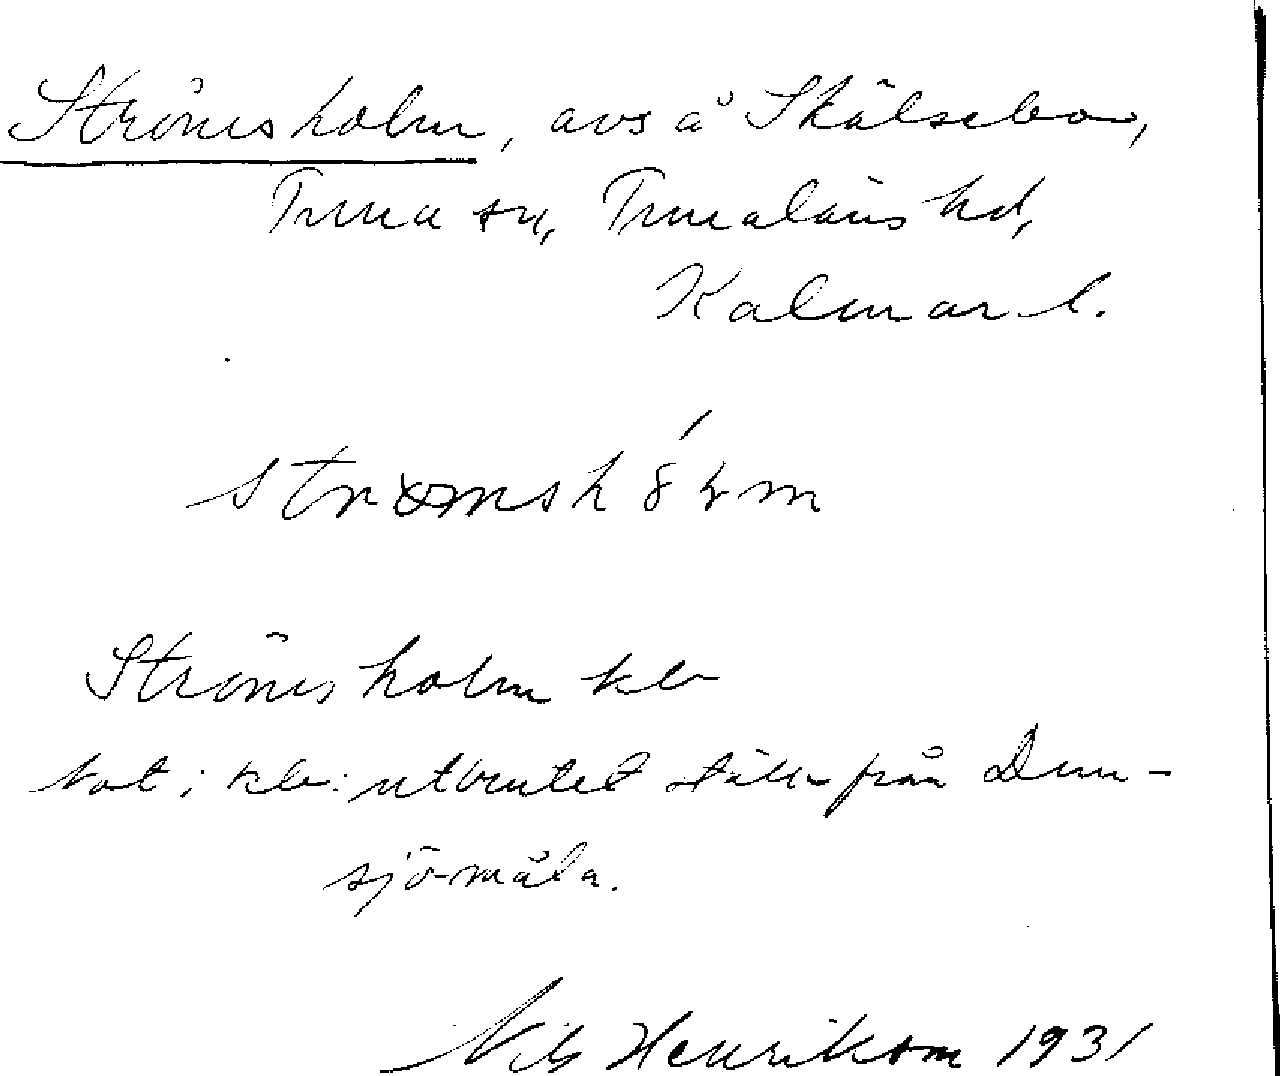 Strömsholm, avs å Skälsebo,
Tuna sn, Tunaläns hd,
Kalmar l.
Strömsholm kb
Not i kb: utbrutet ställe från Dun-
sjömåla.
Nils Henrikson 1931